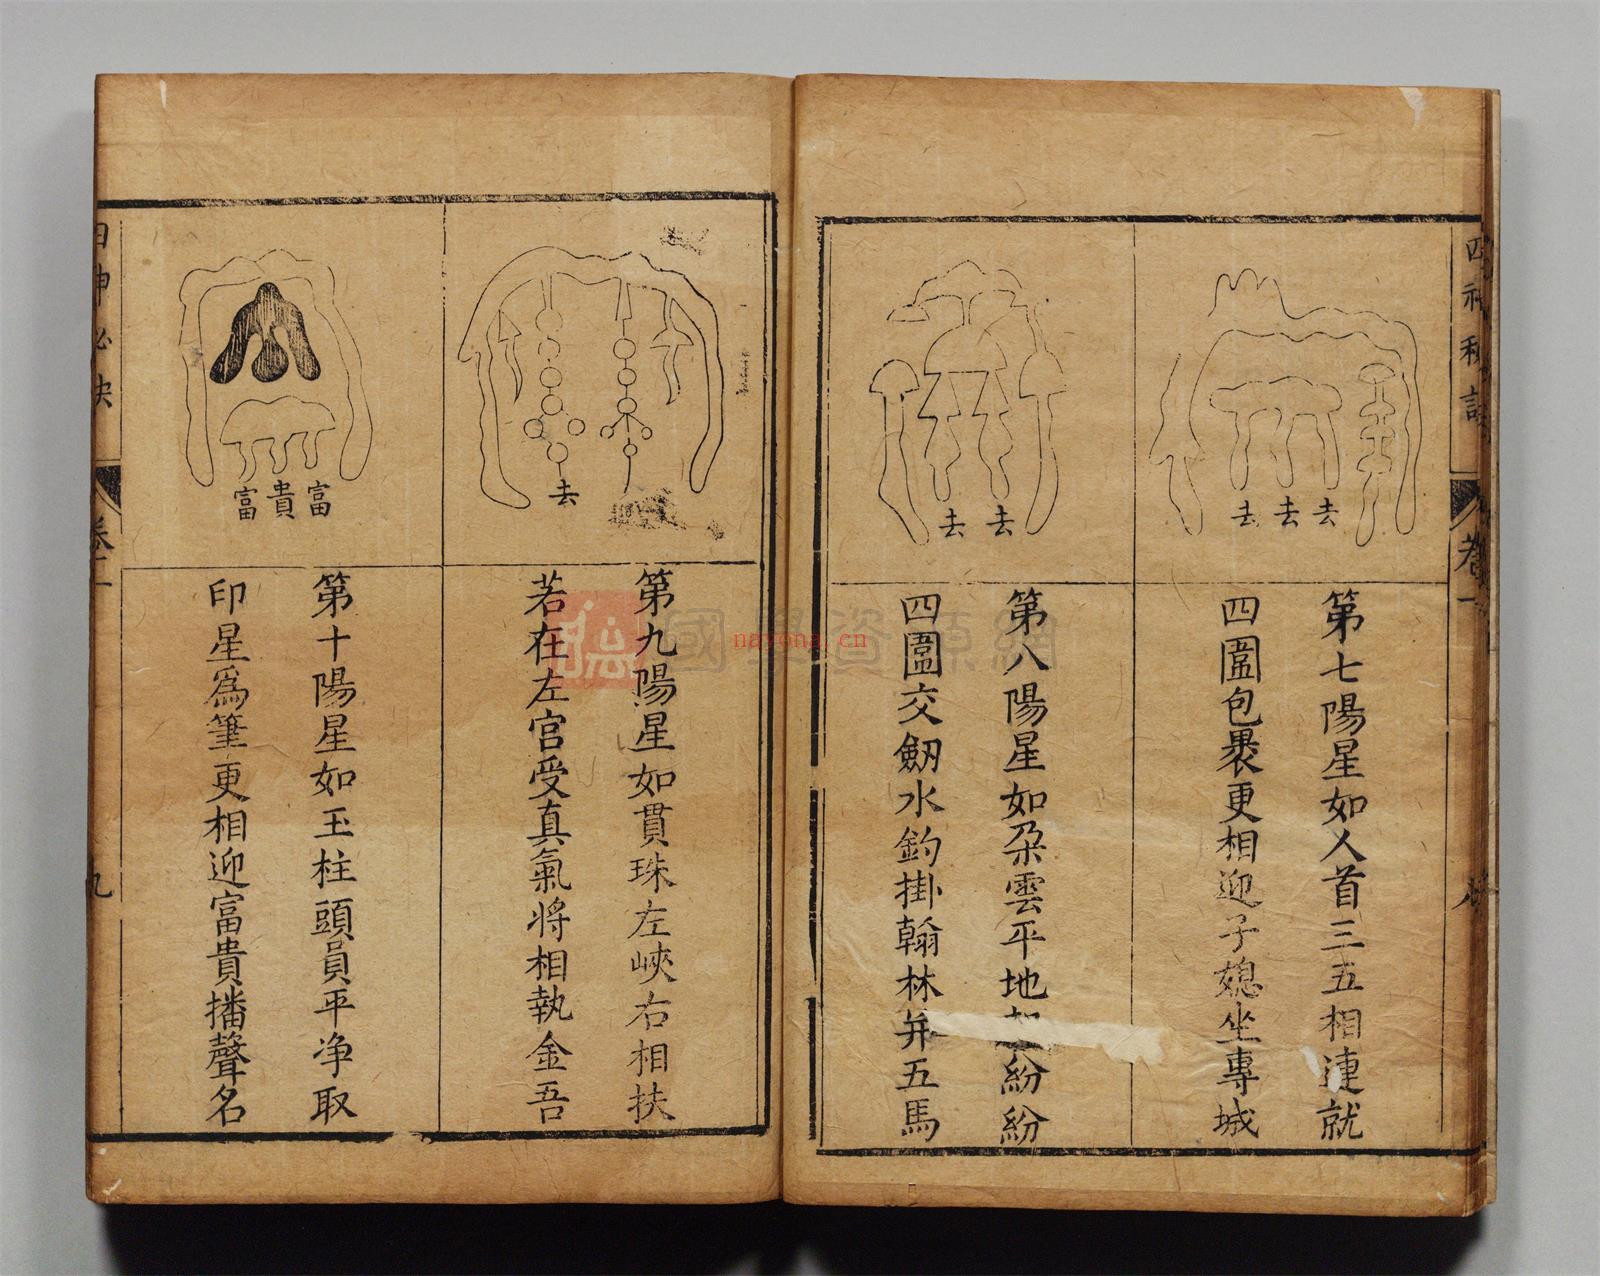 卷一
去去去
第七陽星如人首三五相連就
四圍包裹更相迎子媳坐專城
去去
第八陽星如朶雲平地起紛紛
四圍交劒水鈎掛翰林并五馬
去
第九陽星如貫珠左峽右相扶
若在左宮受真氣將相執金吾
富貴富
第十陽星如玉柱頭員平净取
印星爲筆更相迎富貴播聲名
九
國學資源網
nayona.cn